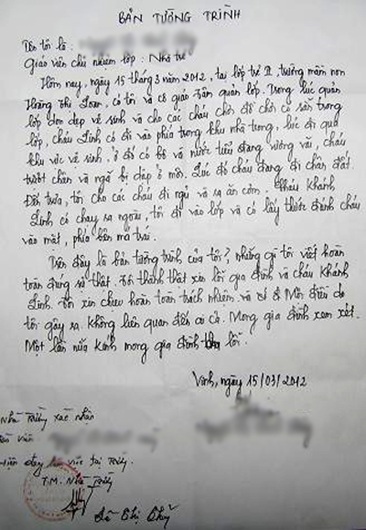 BẢN TƯỜNG TRÌNH
Tên tôi là:
Giáo viên chủ nhiệm lớp: Nhà trẻ
Hôm nay, ngày 15 tháng 3 năm 2012, tại lớp trẻ trường mầm non
Hoàng Thị Loan, có tôi và cô giáo Trâm quản lớp. Trong lúc quản
lớp dọn dẹp vệ sinh và cho các cháu chơi đồ chơi có sẵn trong
lớp, cháu Linh có đi vào phía trong khu nhà trong, lúc đi qua
khu vực vệ sinh, ở đó có bô và nước tiểu đang vương vãi, cháu
trượt chân và ngã bị dập ở môi. Lúc đó cháu đang đi chân đất.
Đến trưa, tôi cho các cháu đi ngủ và ra ăn cơm. Cháu Khánh
Linh có chạy ra ngoài, tôi đi vào lớp và có lấy thước đánh cháu
vào mặt, phía bên má trái.
Trên đây là bản tường trình của tôi, những gì tôi viết hoàn
toàn đúng sự thật. Tôi thành thật xin lỗi gia đình và cháu Khánh
Linh. Tôi xin chịu hoàn toàn trách nhiệm và Mọi điều do
tôi gây ra. Không liên quan đến ai cả. Mong gia đình xem xét.
Một lần nữa kính mong gia đình lỗi.
Vinh, ngày 15/03/2012
Nhà Trường xác nhận
tại Trường
T.M. Nhà Trường